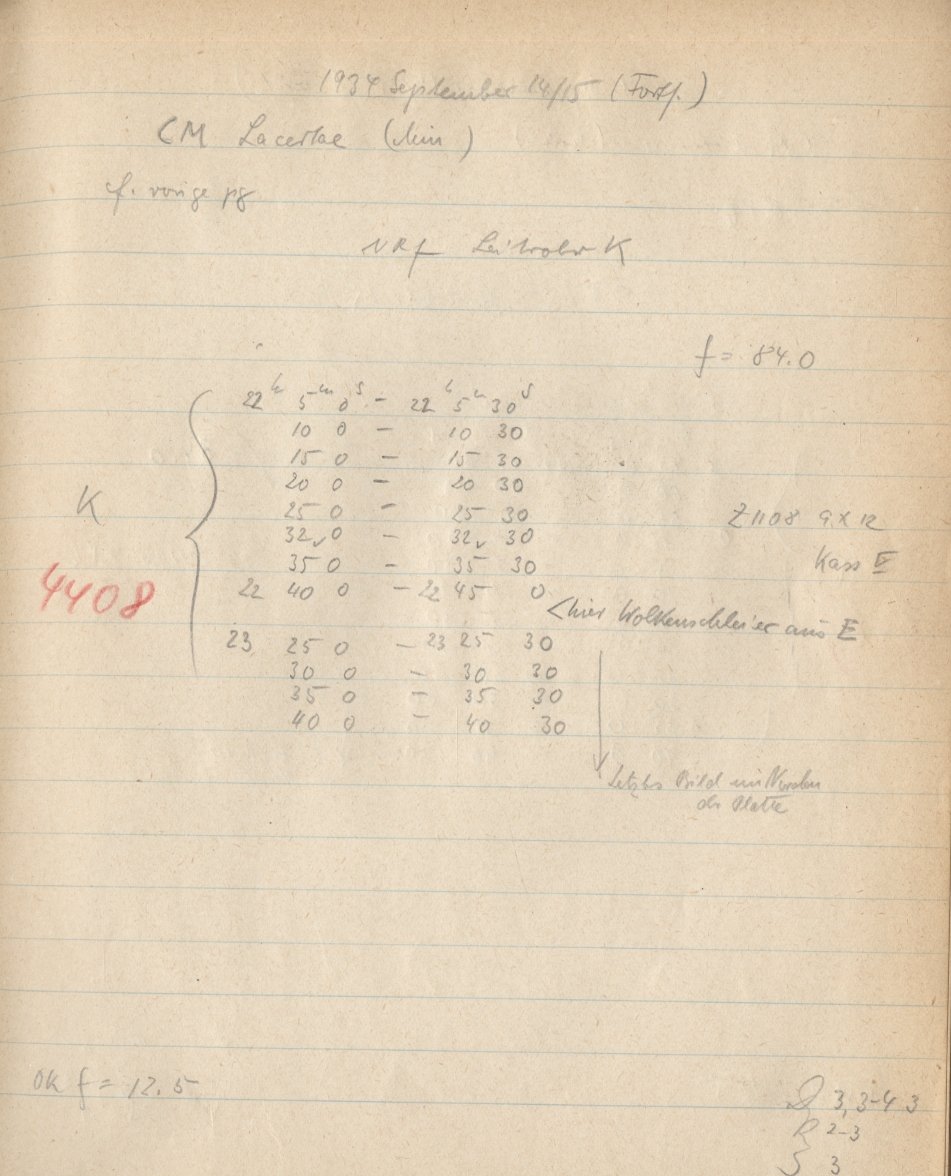 1934 September 14/15 (Forts.)
CM Lacertae (Min)
cf. vorige pg
NRf Leitrohr K
f = 84.0
22h 5m 0s - 22h 5m 30s
10 0 - 10 30
15 0 - 15 30
20 0 - 20 30
25 0 - 25 30
K
Z1108 9X12
32 0 - 32 30
35 0 - 35 30
Kass E
4408
22 40 0 - 22 45 0
<hier Wolkenschleier aus E
23 25 0 - 23 25 30
30 0 - 30 30
35 0 - 35 30
40 0 - 40 30
Letztes Bild im Norden
der Platte
OK f = 12.5
D 3, 3-4 3
R 2-3
S 3